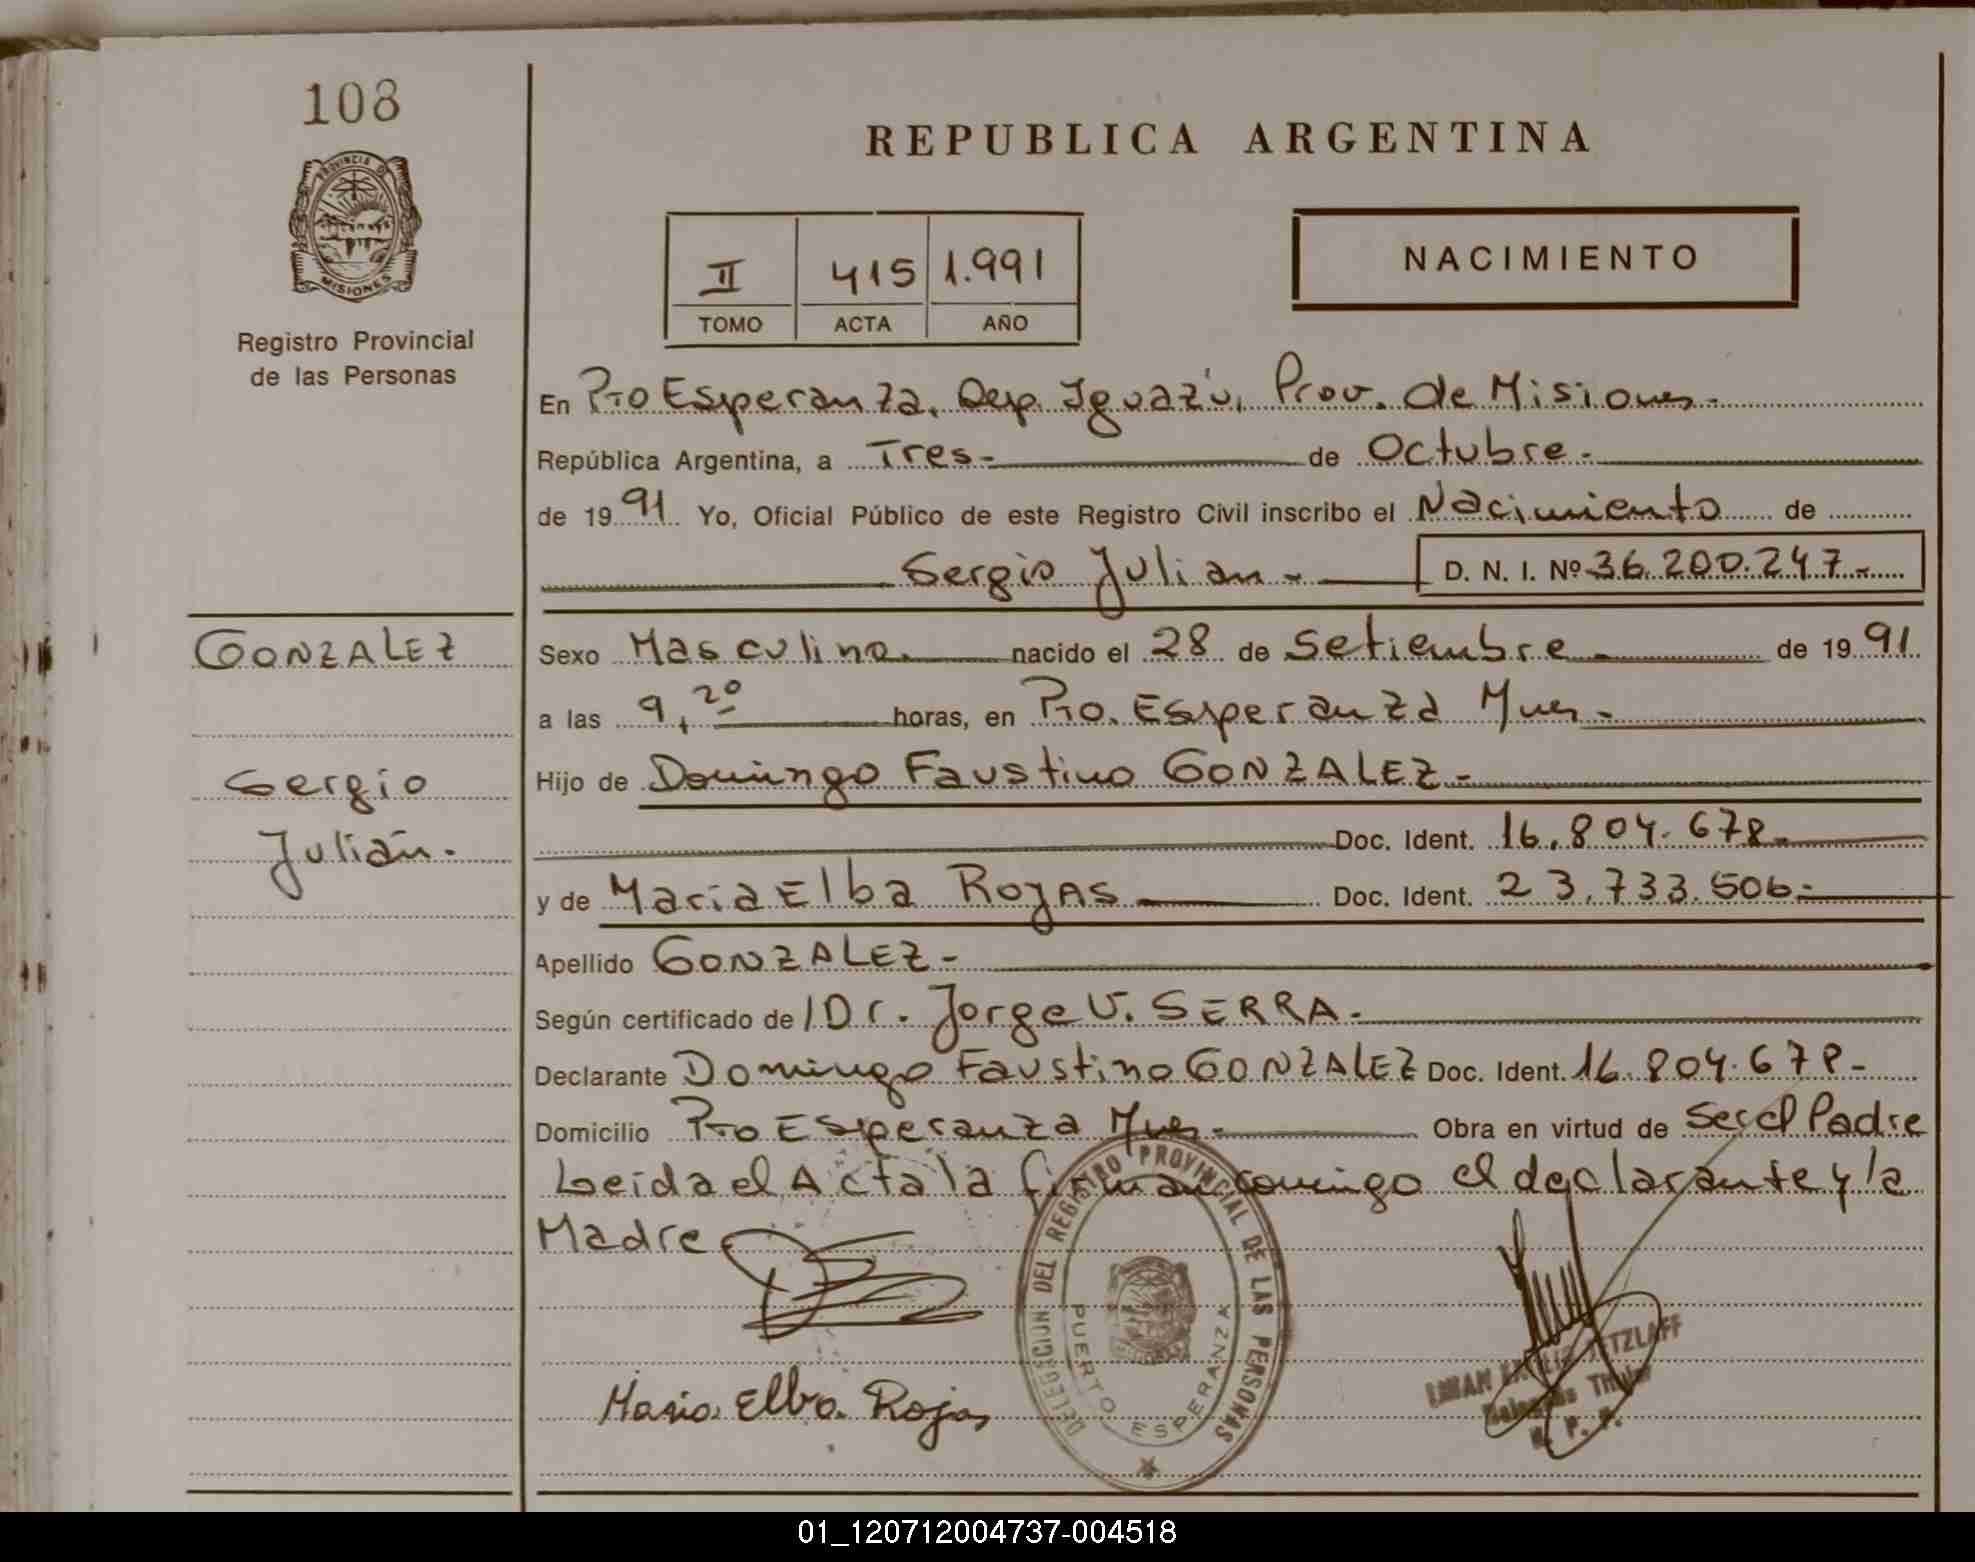 108
PROVINCIA DE
MISIONES
Registro Provincial
de las Personas
REPUBLICA ARGENTINA
II 415 1.991
TOMO ACTA AÑO
NACIMIENTO
En Pto Esperanza, Dep. Iguazú, Prov. de Misiones.-
República Argentina, a Tres.- de Octubre.-
de 1991 Yo, Oficial Público de este Registro Civil inscribo el Nacimiento de
Sergio Julian.- D. N. I. Nº 36.200.247.-
GONZALEZ
Sergio
Julián.-
Sexo Masculino. nacido el 28 de Setiembre.- de 1991
a las 9,20 horas, en Pto. Esperanza Mnes.-
Hijo de Domingo Faustino GONZALEZ.-
Doc. Ident. 16.804.678.-
y de Maria Elba ROJAS Doc. Ident. 23.733.506.-
Apellido GONZALEZ.-
Según certificado de / Dr. Jorge V. SERRA.-
Declarante Domingo Faustino GONZALEZ Doc. Ident. 16.804.678-
Domicilio Pto Esperanza Mnes.- Obra en virtud de Ser el Padre
Leida el Acta la firman conmigo el declarante y la
Madre
DELEGACION DEL REGISTRO PROVINCIAL DE LAS PERSONAS
PUERTO ESPERANZA
Maria Elba Rojas
Titular
R. P. P.
01_120712004737-004518